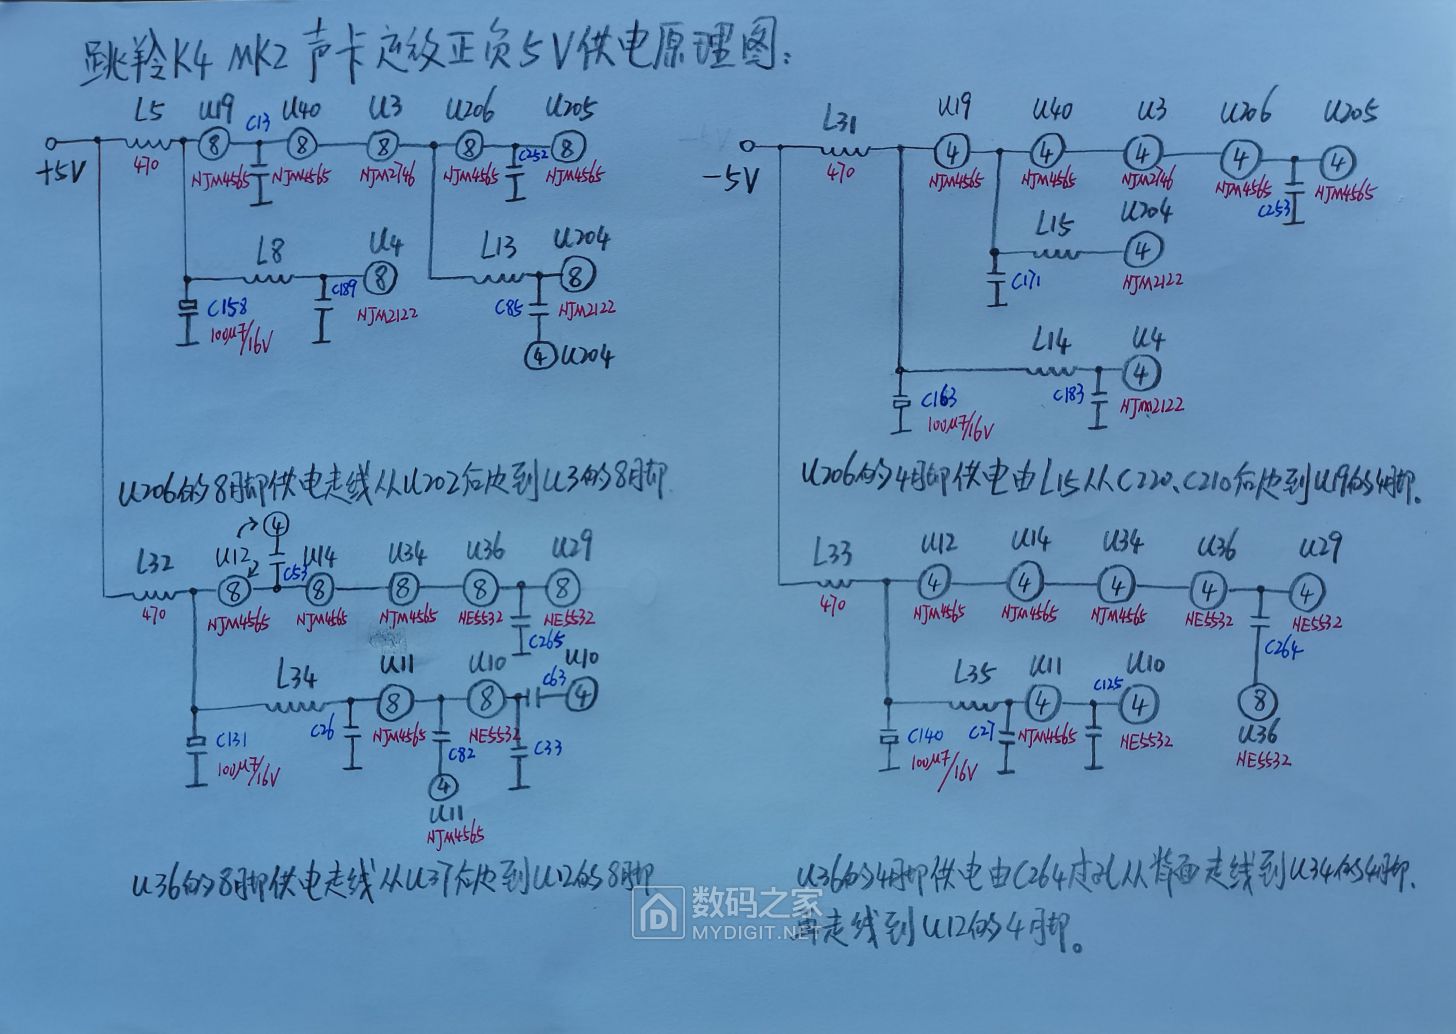 跳羚K4 MK2 声卡运放正负5V供电原理图:
L5 U19 C13 U40 U3 U206 U205
+5V 470 8 8 8 8 8
NJM4565 NJM4565 NJM2746 NJM4565 C252 NJM4565
L8 U4 L13 U204
8 8
C158 C189 NJM2122 C85 NJM2122
100μF/16V
4 U204
U206的8脚供电走线从U202后边到U3的8脚.
4
L32 U12 C53 U14 U34 U36 U29
8 8 8 8 8
470 NJM4565 NJM4565 NJM4565 NE5532 C265 NE5532
L34 U11 U10 C63 U10
8 8 4
C131 C26 NJM4565 C82 NE5532 C33
100μF/16V
4
U11
NJM4565
U36的8脚供电走线从U37后边到U12的8脚
L31 U19 U40 U3 U206 U205
-5V 470 4 4 4 4 4
NJM4565 NJM4565 NJM2746 NJM4565 C253 NJM4565
L15 U204
4
C171 NJM2122
L14 U4
4
C163 C183 NJM2122
100μF/16V
U206的4脚供电由L15从C220、C210后边到U19的4脚.
L33 U12 U14 U34 U36 U29
4 4 4 4 4
470 NJM4565 NJM4565 NJM4565 NE5532 NE5532
C264
L35 U11 C125 U10
4 4 8
C140 C27 NJM4565 NE5532 U36
100μF/16V NE5532
U36的4脚供电由C264过孔从背面走线到U34的4脚.
再走线到U12的4脚。
数码之家
MYDIGIT.NET